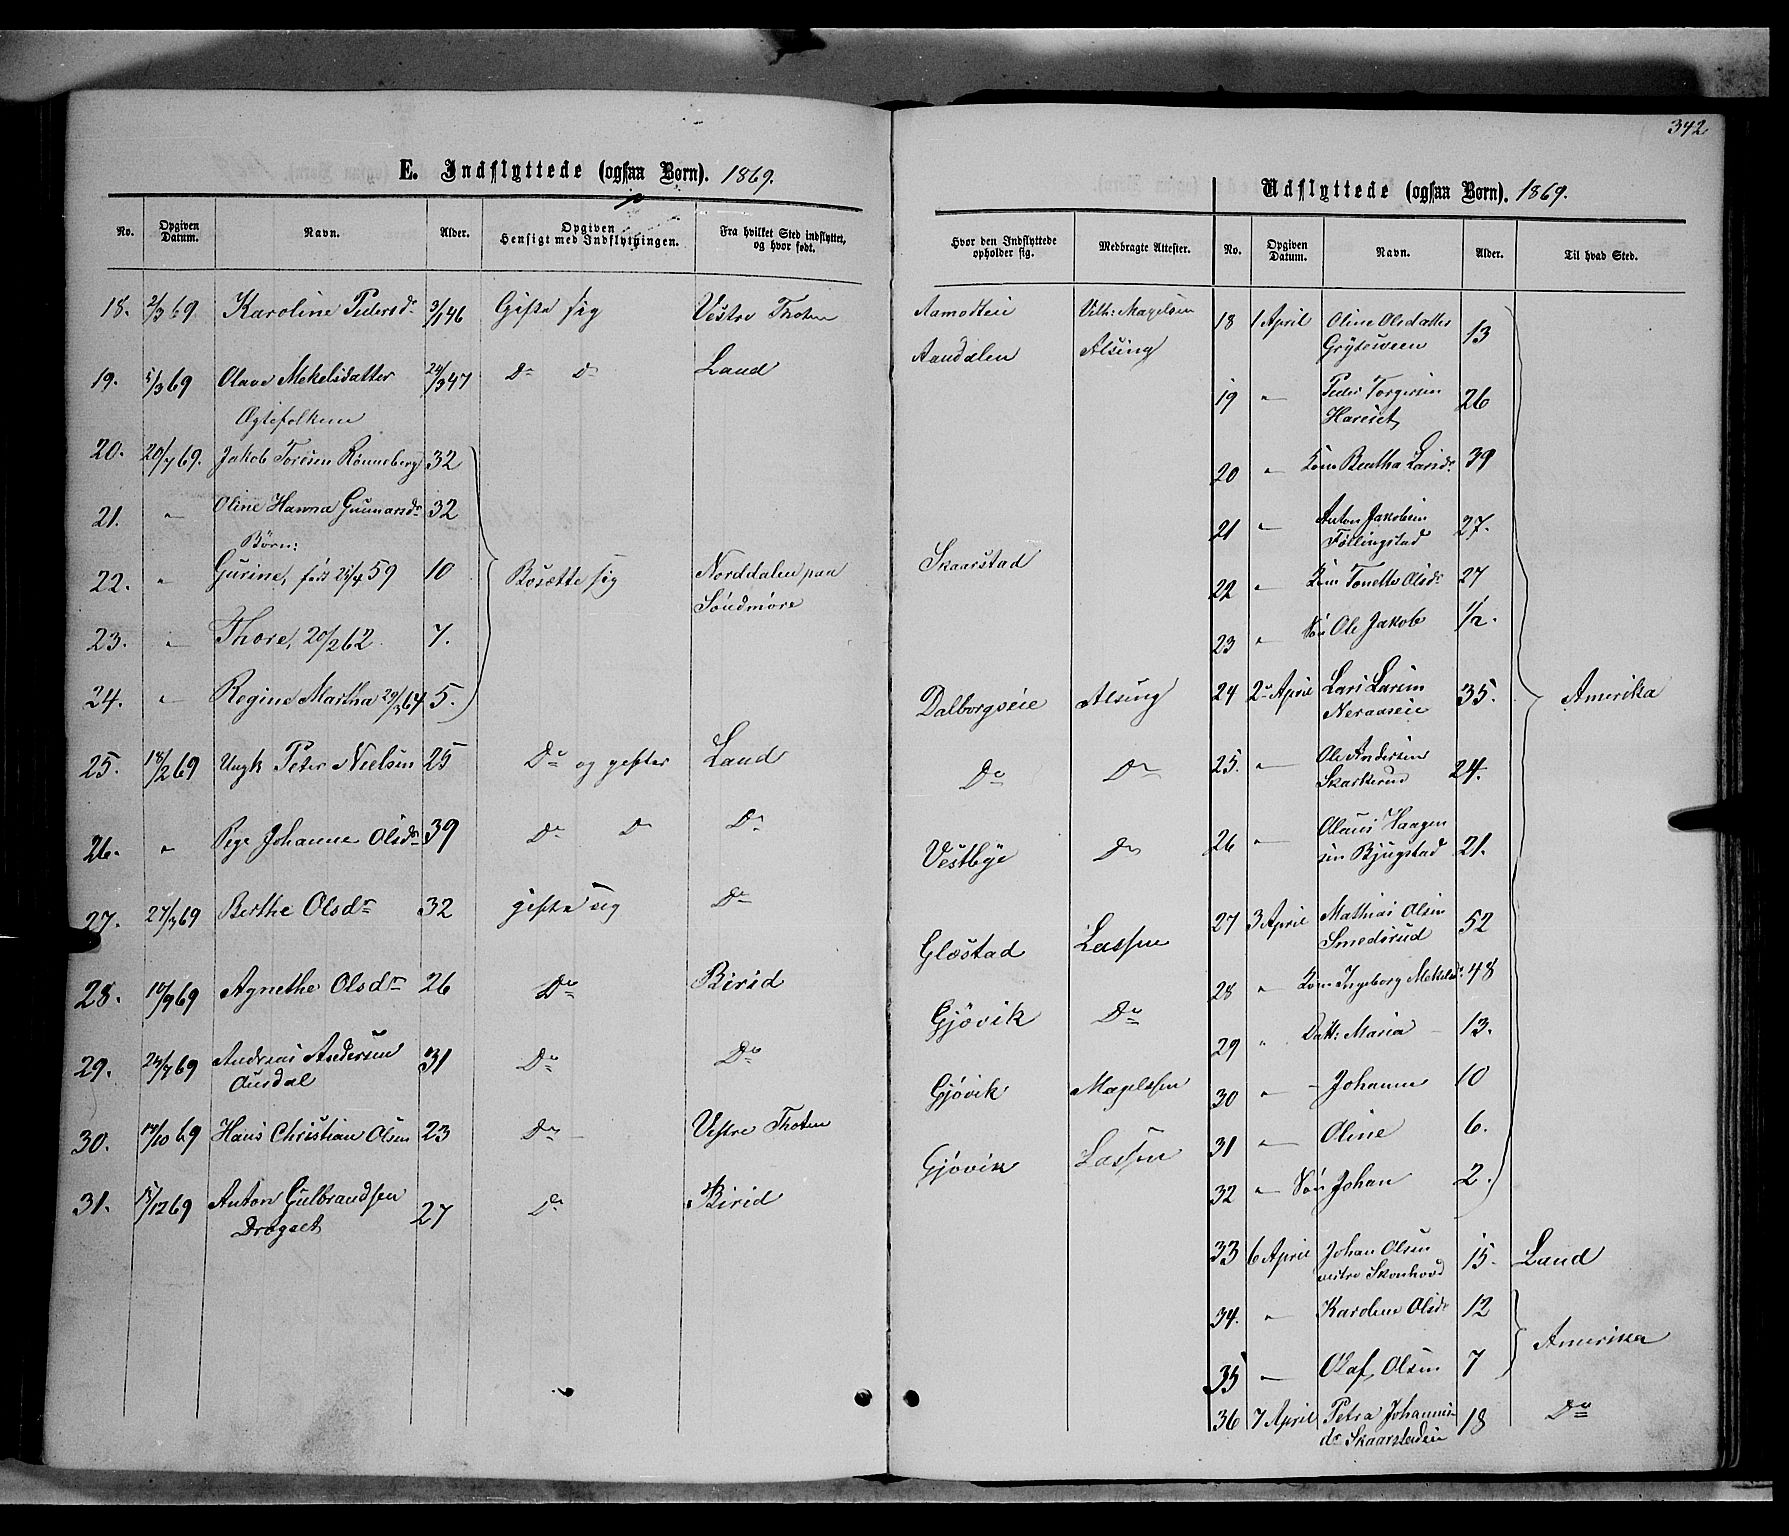 342
E. Indflyttede (ogsaa Børn). 1869.
No. Opgiven Datum. Navn. Alder. Opgiven Hensigt med Indflytningen. Fra hvilket Sted indflyttet, og hvor født. Hvor den Indflyttede opholder sig. Medbragte Attester.
18. 2/3 69 Karoline Pedersd. 3/1 46 Gifte sig Vestre Thoten Aamotteie Vilh: Magelsen
19. 5/3 69 Olave Mekelsdatter 24/9 47 Do Do Land Aandalen Alsing
Ægtefolkene
20. 20/7 69. Jakob Toresen Rönneberg 32
21. " Oline Hanna Gunnarsdr 32
Børn:
22. " Gurine, født 25/4 59 10 Bosætte sig Norddalen paa Söndmöre Skaarstad
23. " Thore, 20/2 62 7.
24. " Regine Martha 29/3 64 5.
25. 18/2 69 Ungk Peter Nielsen 25 Do og gifter Land Dalborgseie Alsing
26. " Pige Johanne Olsdr 39 Do Do Do Do Do
27. 27/3 69 Berthe Olsdr 32 gifte sig Do Vestbye Do
28. 10/9 69 Agnethe Olsdr 26 Do Birid Glæstad Lassen
29. 24/7 69 Andreas Andersen Ousdal 31 Do Do Gjövik Do
30. 14/10 69 Hans Christian Olsen 23 Do Vestre Thoten Gjövik Magelssen
31. 15/12 69 Anton Gulbrandsen Drogset 27 Do Birid Gjövik Lassen
Udflyttede (ogsaa Børn). 1869.
No. Opgiven Datum. Navn. Alder. Til hvad Sted.
18 1 April Oline Olsdatter Gryteween 13
19 " Peder Torgersen Hareset 26
20 " Kone Bertha Larsdr 39
21 " Anton Jakobsen Föllingstad 27.
22 " Kone Tonette Olsdr 27
23 " Sön Ole Jakob 1/2.
24 2 April Lars Larsen Neraaseie 35. Amerika
25. " Ole Andersen Skarkerud 24.
26 " Olaus Haagensen Bjugstad 21.
27 3 April Mathias Olsen Smedsrud 52
28 " Kone Ingeborg Mekelsdr 48
29 " Datt: Maria 13.
30 " Johanne 10
31 " Oline 6.
32 " Sön Johan 2.
33 6 April Johan Olsen vestre Skonhovd 15. Land
34. " Karoline Olsdr 12
35 " Olaf Olsen 7 Amerika
36 7 April Petra Johannesdr Skaarstadeie 18 Do